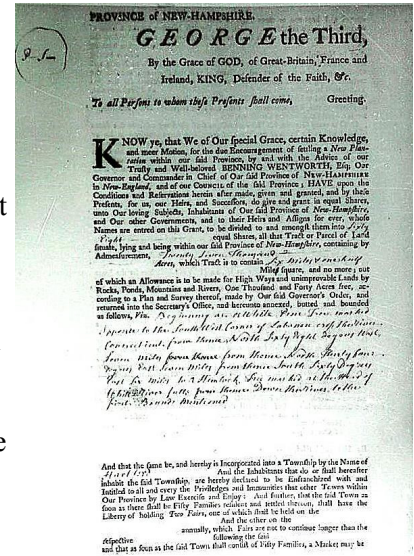 PROVINCE of NEW-HAMPSHIRE.
GEORGE the Third,
By the Grace of GOD, of Great-Britain, France and
Ireland, KING, Defender of the Faith, &c.
To all Persons to whom these Presents shall come, Greeting.
KNOW ye, that We of Our special Grace, certain Knowledge,
and meer Motion, for the due Encouragement of settling a New Plan-
tation within our said Province, by and with the Advice of our
Trusty and Well-beloved BENNING WENTWORTH, Esq; Our
Governor and Commander in Chief of Our said Province of NEW-HAMPSHIRE
in New-England, and of our COUNCIL of the said Province; HAVE upon the
Conditions and Reservations herein after made, given and granted, and by these
Presents, for us, our Heirs, and Successors, do give and grant in equal Shares,
unto Our loving Subjects, Inhabitants of Our said Province of New-Hampshire,
and Our other Governments, and to their Heirs and Assigns for ever, whose
Names are entred on this Grant, to be divided to and amongst them into Sixty
Eight equal Shares, all that Tract or Parcel of Land
situate, lying and being within our said Province of New-Hampshire, containing by
Admeasurement, Twenty Seven Thousand
Acres, which Tract is to contain Six Miles & one half
Miles square, and no more; out
of which an Allowance is to be made for High Ways and unimprovable Lands by
Rocks, Ponds, Mountains and Rivers, One Thousand and Forty Acres free, ac-
cording to a Plan and Survey thereof, made by Our said Governor's Order, and
returned into the Secretary's Office, and hereunto annexed, butted and bounded
as follows, Viz. Beginning at a White Pine Tree marked
Opposite to the South West Corner of Lebanon
Connecticut from thence North Sixty Eight Degrees West
Seven Miles from thence North Thirty four
Degrees East Seven Miles from thence South Sixty Degrees
East six Miles to a Hemlock Tree marked at the Head of
White River falls from thence Down the River to the
first Bounds Mentioned
And that the same be, and hereby is Incorporated into a Township by the Name of
And the Inhabitants that do or shall hereafter
inhabit the said Township, are hereby declared to be Enfranchized with and
Intitled to all and every the Priviledges and Immunities that other Towns within
Our Province by Law Exercise and Enjoy: And further, that the said Town as
soon as there shall be Fifty Families resident and settled thereon, shall have the
Liberty of holding Two Fairs, one of which shall be held on the
And the other on the
annually, which Fairs are not to continue longer than the
respective following the said
and that as soon as the said Town shall consist of Fifty Families, a Market may be